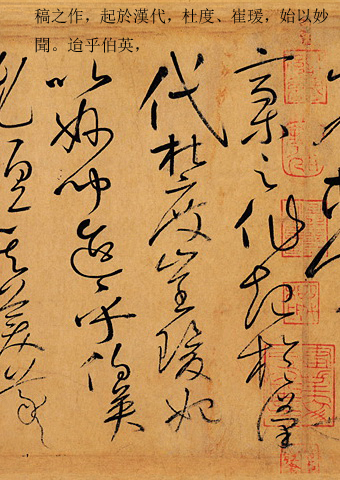 稿之作，起於漢代，杜度、崔瑗，始以妙
聞。迨乎伯英，
稾之作起於漢
代杜度崔瑗始
以妙聞迨乎伯英
尤擅其美羲